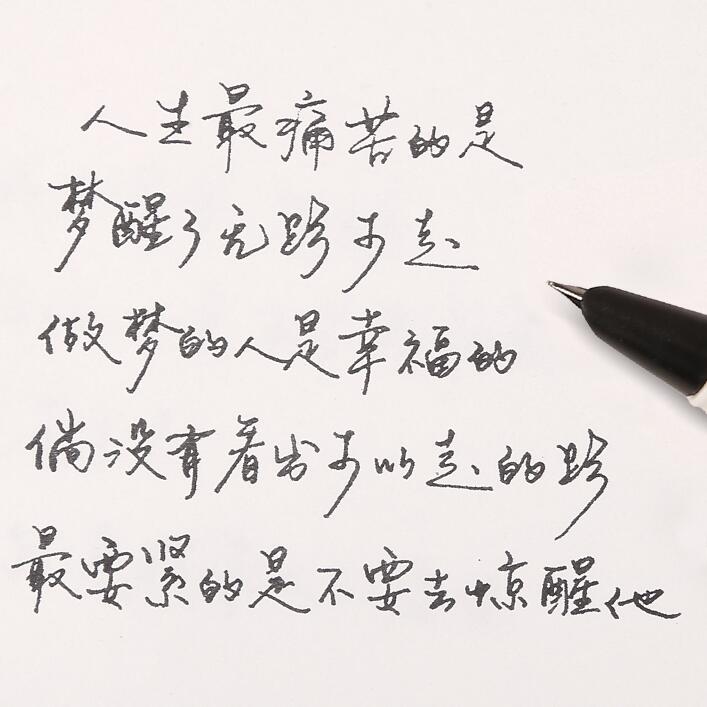 人生最痛苦的是
梦醒了无路可走
做梦的人是幸福的
倘没有看出可以走的路
最要紧的是不要去惊醒他